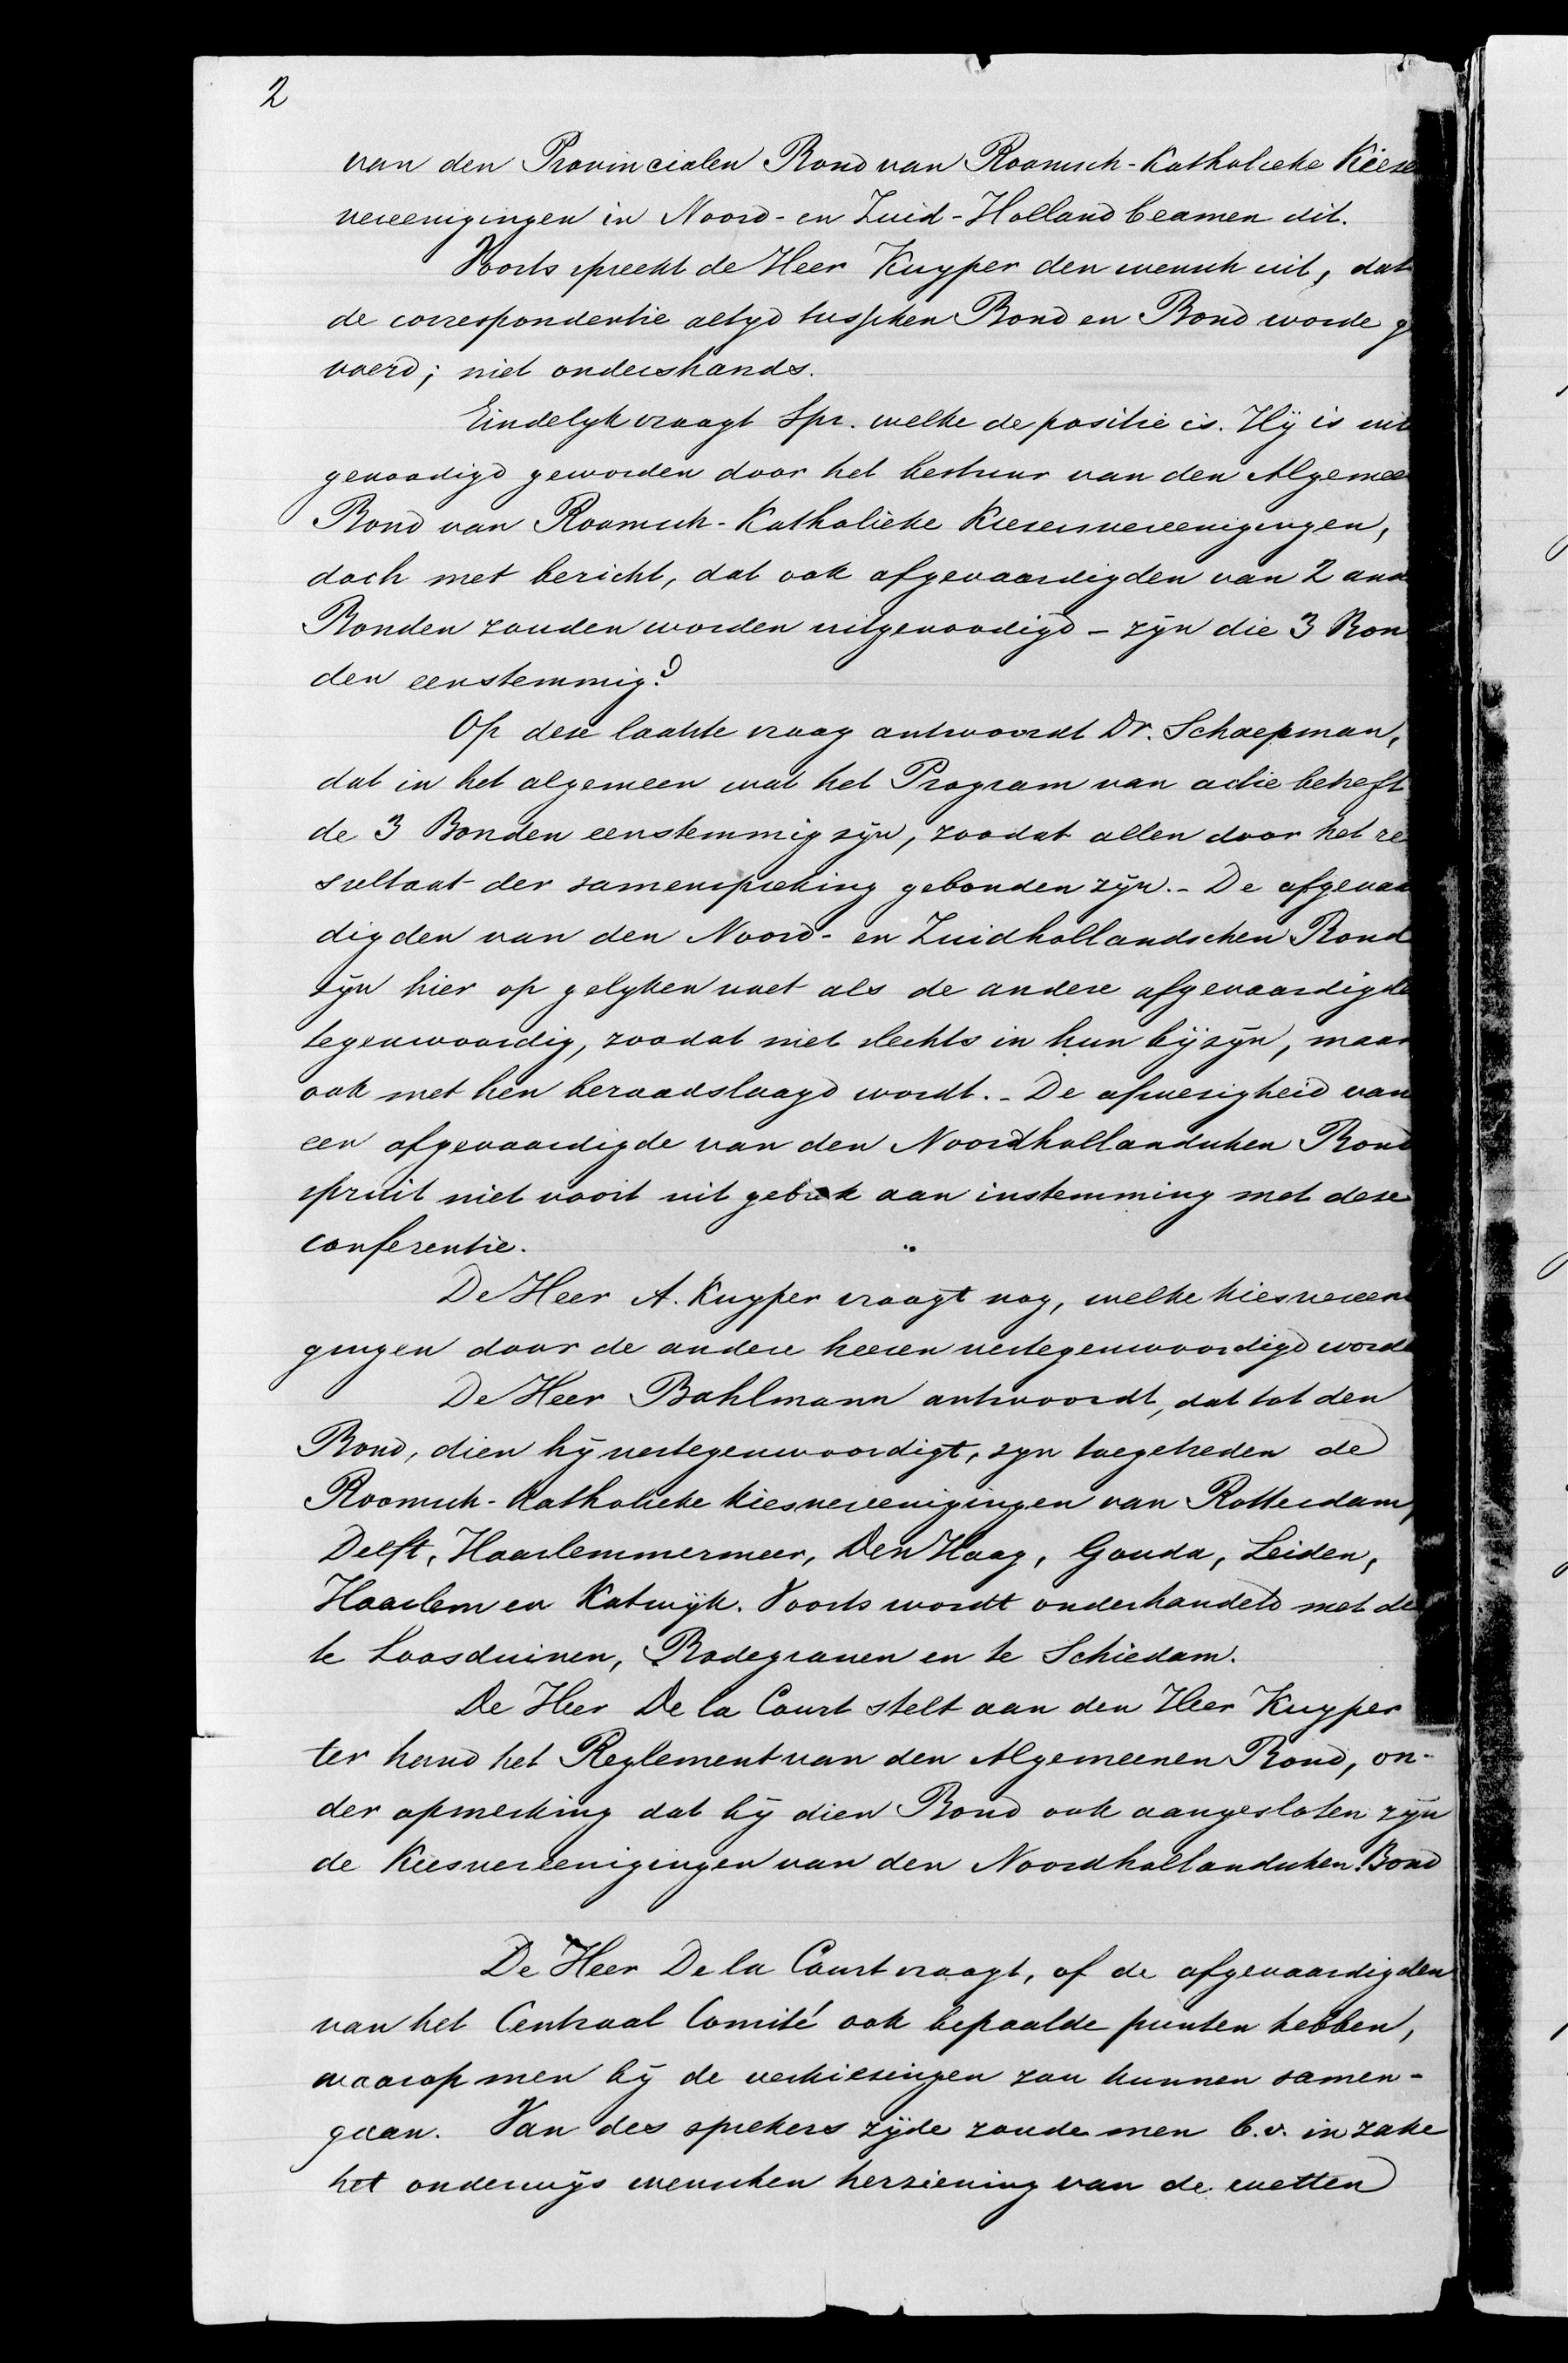 2
van den Provincialen Bond van Roomsch-Katholieke Kiese
vereenigingen in Noord- en Zuid-Holland beamen dit.
Voorts spreekt de Heer Kuyper den wensch uit, dat
de correspondentie altyd tusschen Bond en Bond worde g
voerd; niet ondershands.
Eindelyk vraagt Spr. welke de positie is. Hij is uit
genoodigd geworden door het bestuur van den Algemee
Bond van Roomsch-Katholieke Kiesersvereenigingen,
doch met bericht, dat ook afgevaardigden van 2 and
Bonden zouden worden uitgenoodigd - zijn die 3 Bon
den eenstemmig?
Op deze laatste vraag antwoordt Dr. Schaepman,
dat in het algemeen wat het Program van actie betreft
de 3 Bonden eenstemmig zijn, zoodat allen door het re
sultaat der samenspreking gebonden zijn. - De afgevaar
digden van den Noord- en Zuidhollandschen Bond
zijn hier op gelyken voet als de andere afgevaardigde
tegenwoordig, zoodat niet slechts in hun bijzijn, maar
ook met hen beraadslaagd wordt. - De afwezigheid van
een afgevaardigde van den Noordhollandschen Bond
spruit niet voort uit gebrek aan instemming met deze
conferentie.
De Heer A. Kuyper vraagt nog, welke kiesvereeni
gingen door de andere heeren vertegenwoordigd worde
De Heer Bahlmann antwoordt, dat tot den
Bond, dien hij vertegenwoordigt, zyn toegetreden de
Roomsch-Katholieke kiesvereenigingen van Rotterdam,
Delft, Haarlemmermeer, Den Haag, Gouda, Leiden,
Haarlem en Katwijk. Voorts wordt onderhandeld met de
te Loosduinen, Bodegraven en te Schiedam.
De Heer De la Court stelt aan den Heer Kuyper
ter hand het Reglement van den Algemeenen Bond, on-
der opmerking dat bij dien Bond ook aangesloten zijn
de Kiesvereenigingen van den Noordhollandschen Bond
De Heer De la Court vraagt, of de afgevaardigden
van het Centraal Comité ook bepaalde punten hebben,
waarop men bij de verkiezingen zou kunnen samen-
gaan. Van des sprekers zijde zoude men b.v. in zake
het onderwijs wenschen herziening van de wetten